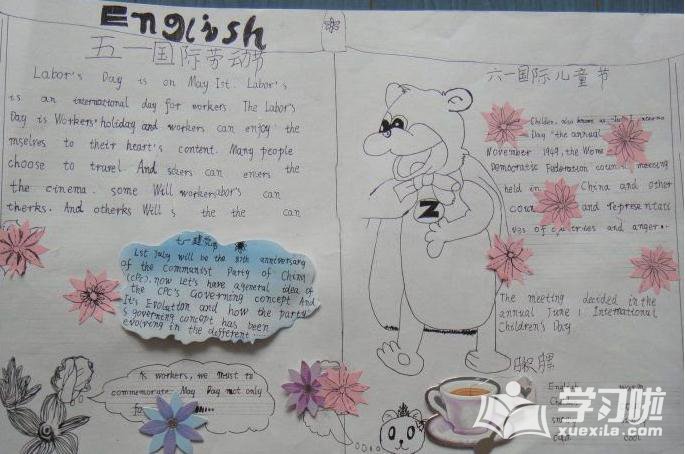 English
五一国际劳动节
Labor's Day is on May 1st. Labor's
is an international day for workers. The Labor's
Day is Workers' holiday and workers can enjoy the
mselves to their heart's content. Many people
choose to travel. And can the
the cinema. some Will workers can
therks. And otherks Will s the the can
七一建党节
1st July will be the 87th anniversary
of the Communist Party of China
(CPC), now Let's have ageneral idea of
the CPC's Governing concept And
It's Evolution and how the party
's governing concept has been
evolving in the different
As workers, we must to
commemorate May Day not only
六一国际儿童节
Children, also known as
Day "the annual
November 1949, the Wome
Democratic Federation council meeting
held in China and other
coun and representati
ves of countries and anger
The meeting decided in the
annual June 1 International
Children's Day
Z
English warm
cool
学习啦
xuexila.com